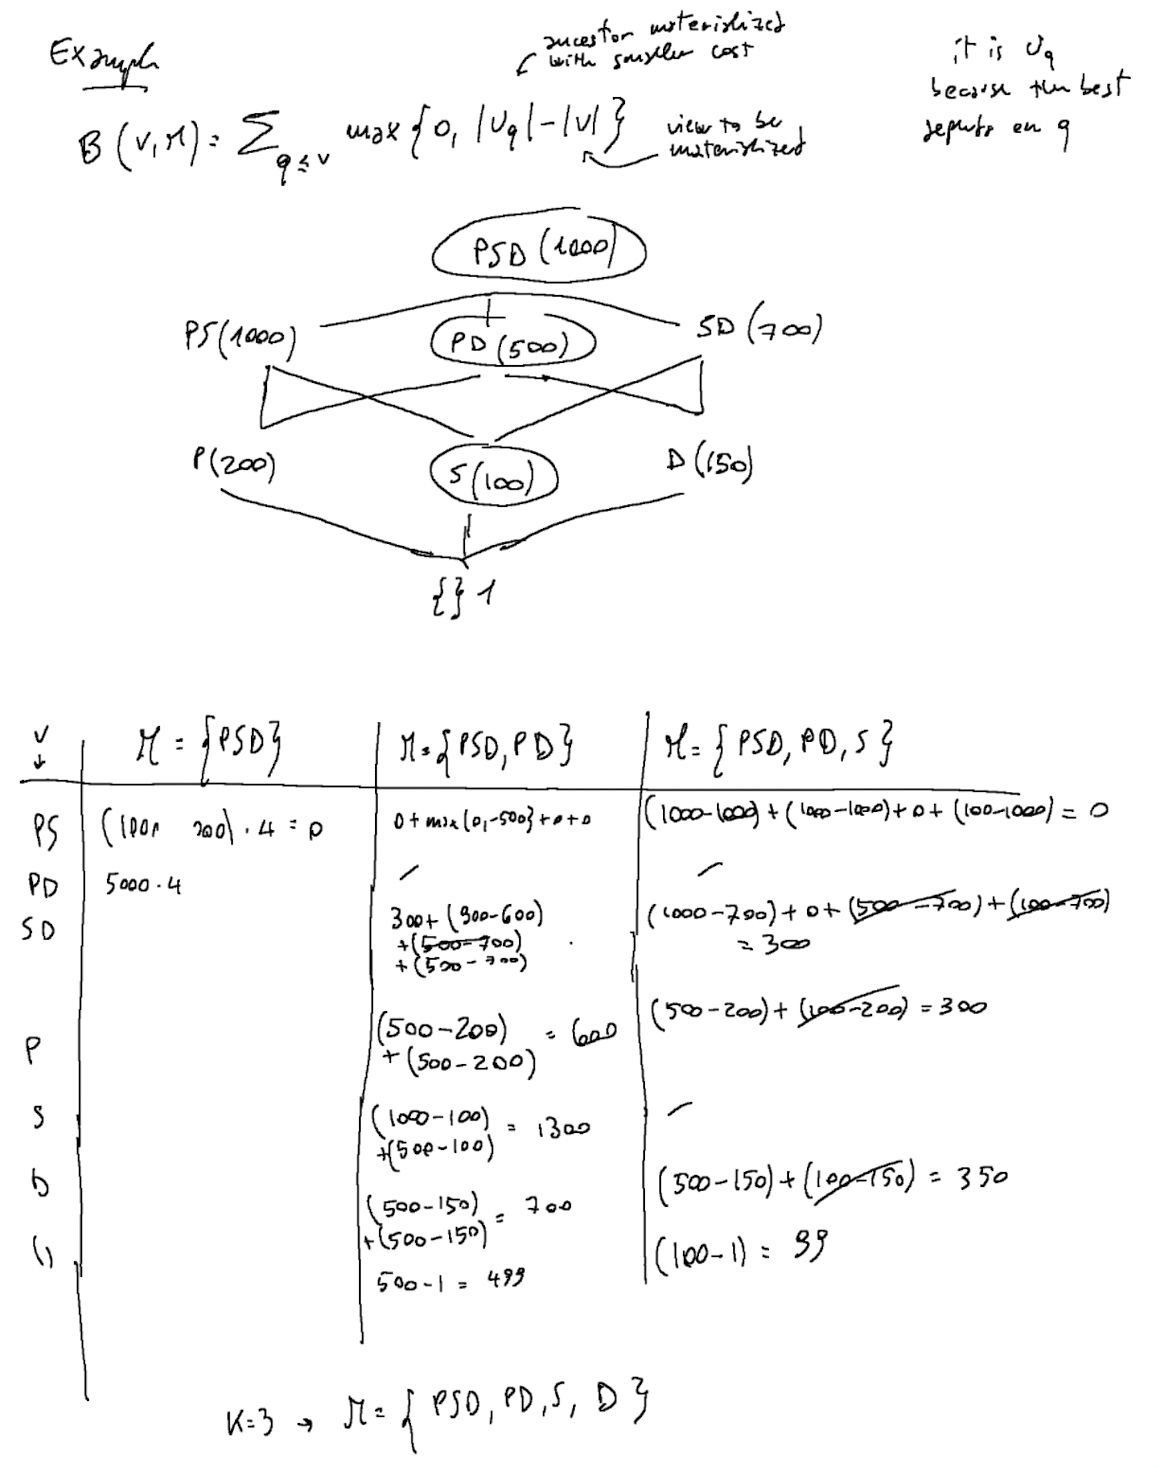 Example
ancestor materialized
with smaller cost
it is Vq
because the best
depends on q
B (V, M) = ∑ q≤v max { 0, |Vq| - |V| }
view to be
materialized
PSD (1000)
PS (1000) PD (500) SD (700)
P (200) S (100) D (150)
{} 1
V ↓ M = {PSD} M = {PSD, PD} M = { PSD, PD, S }
PS (100 200) · 4 = 0 0 + max {0, -500} + 0 + 0 (1000-1000) + (1000-1000) + 0 + (100-1000) = 0
PD 5000 · 4 / /
SD 300 + (900-600) (1000-700) + 0 + (500-700) + (100-700)
+ (500-700) = 300
+ (500-700)
P (500-200) = 600 (500-200) + (100-200) = 300
+ (500-200)
S (1000-100) = 1300 /
+ (500-100)
D (500-150) = 700 (500-150) + (100-150) = 350
+ (500-150)
{} 500-1 = 499 (100-1) = 99
K=3 → M = { PSD, PD, S, D }